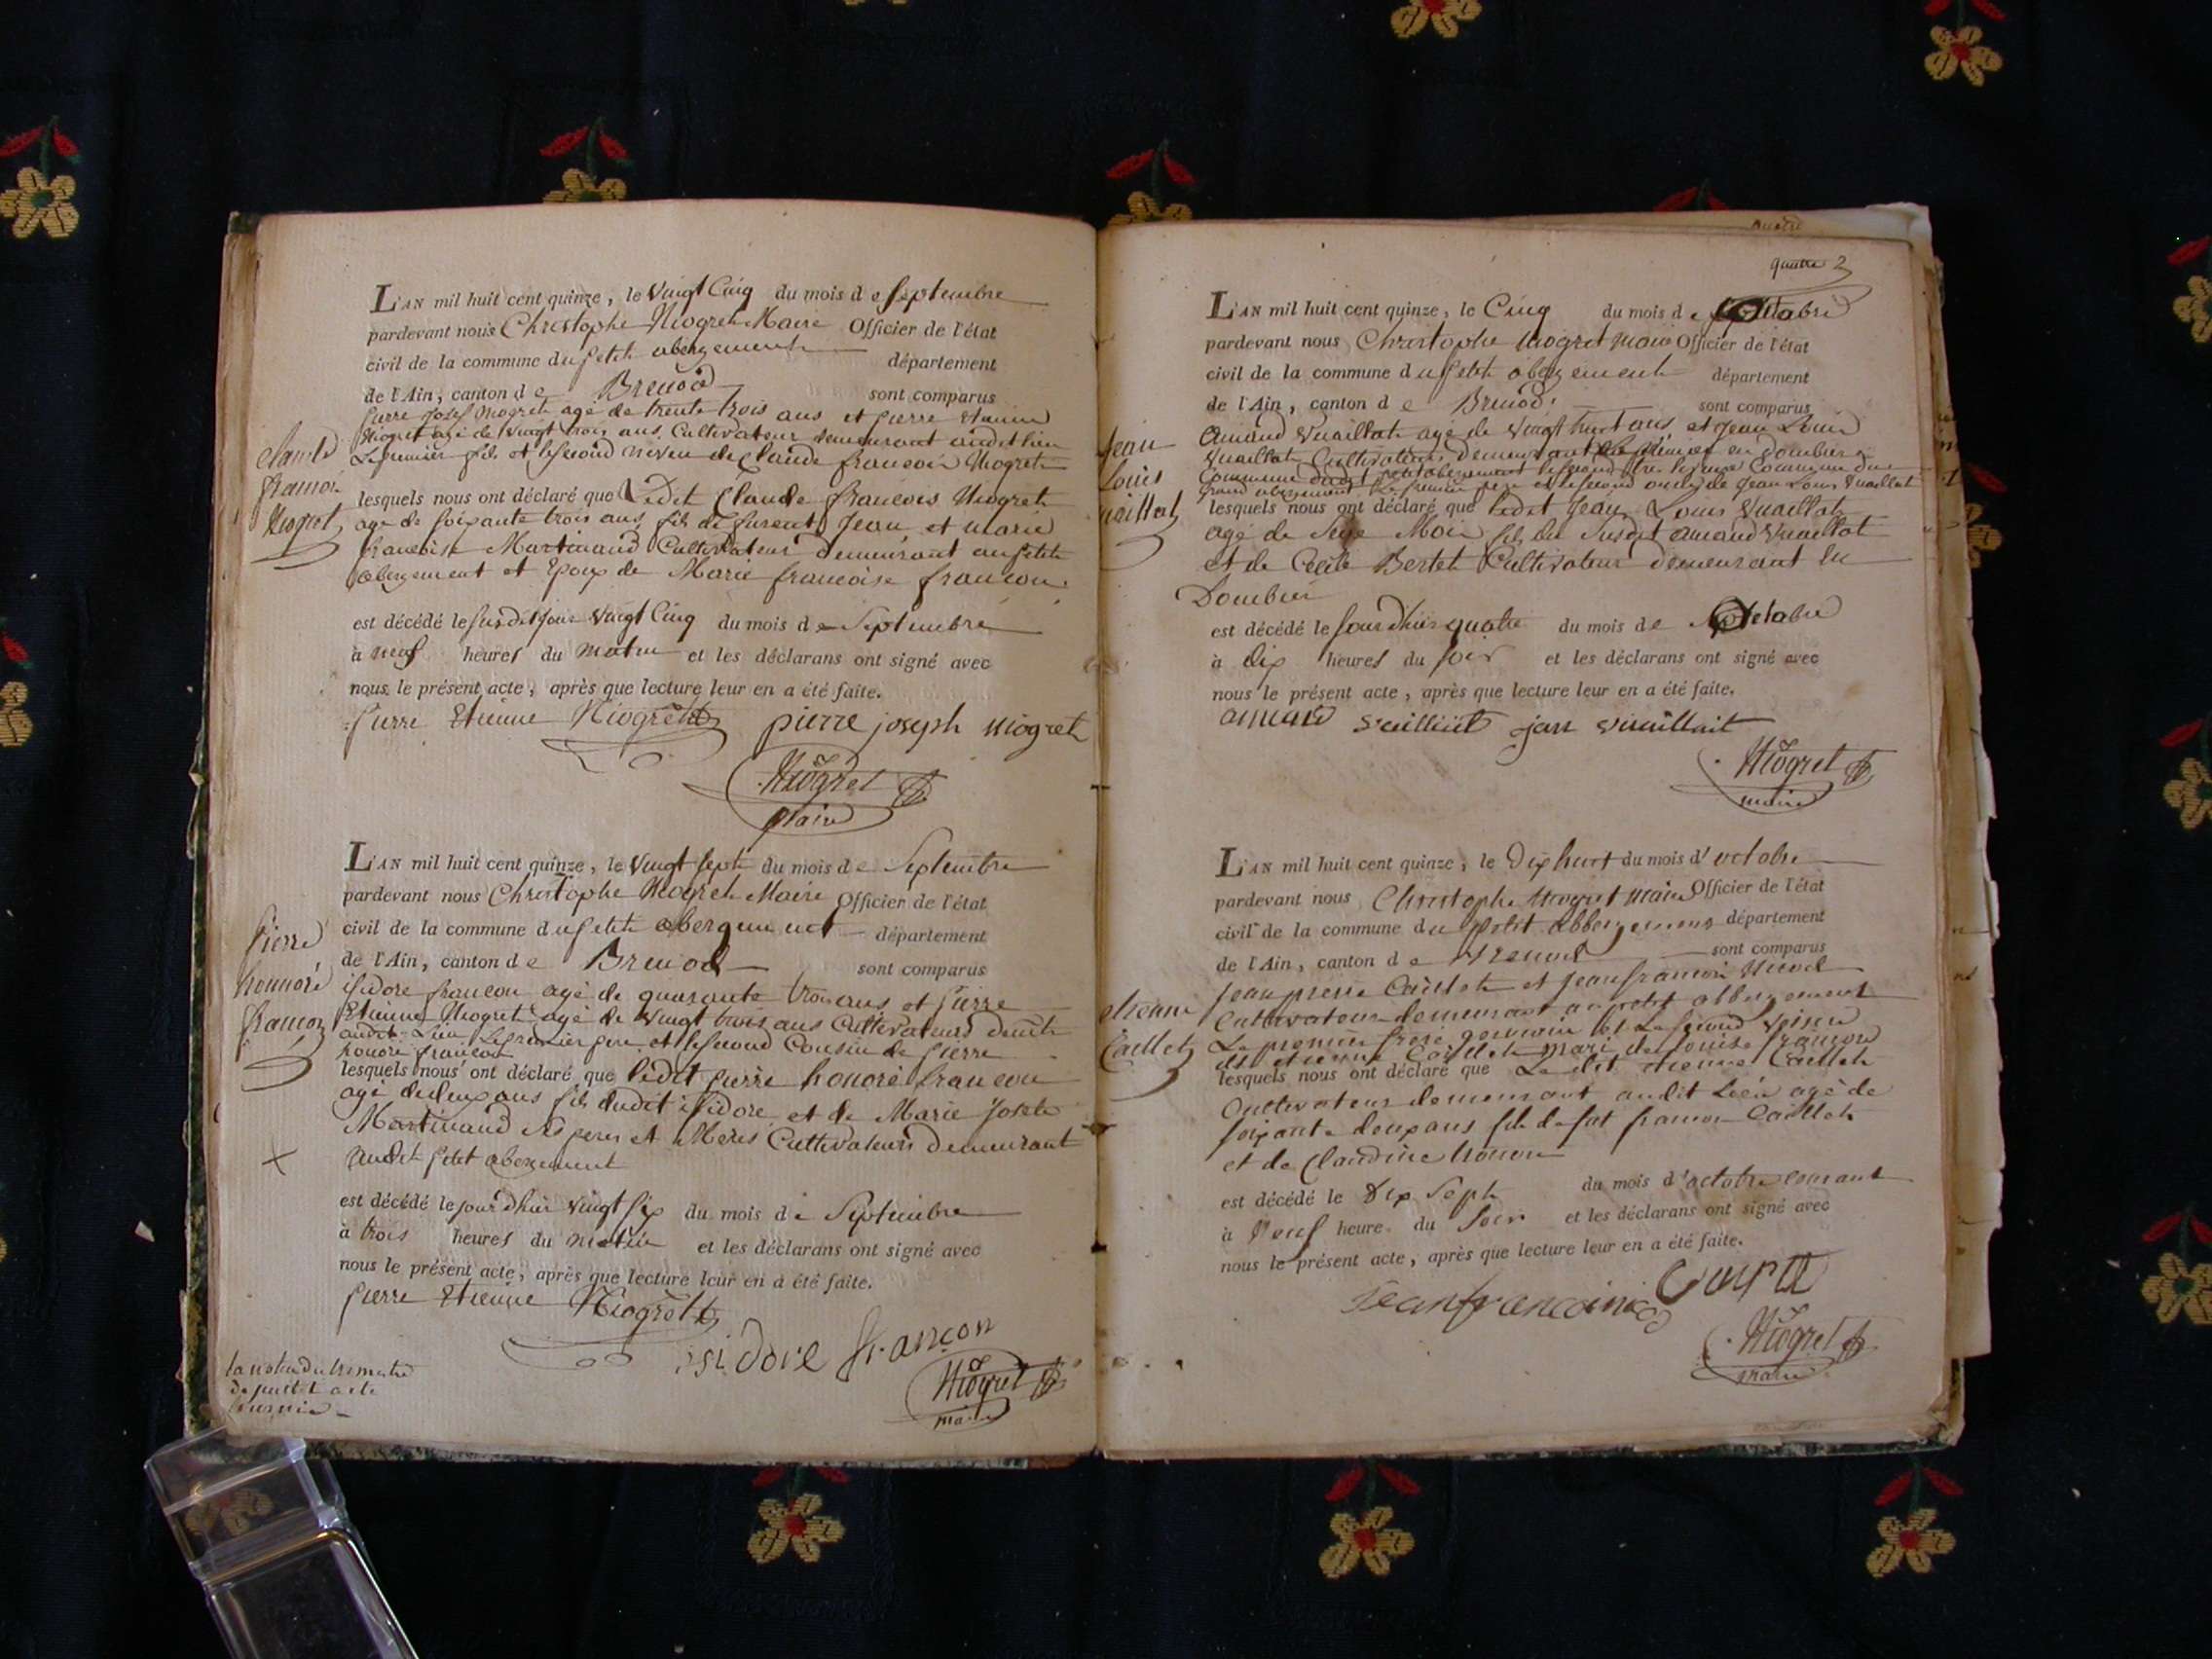 L'AN mil huit cent quinze, le vingt Cinq du mois de Septembre
pardevant nous Christophe Niogret Maire Officier de l'état
civil de la commune du petit abergement département
de l'Ain, canton de Brenod sont comparus
pierre Josef Niogret agé de trente trois ans et pierre Etienne
Niogret agé de vingt trois ans Cultivateur demeurant audit lieu
Le premier fils et le second neveu de Claude francois Niogret
Claude
francois
Niogret
lesquels nous ont déclaré que Ledit Claude francois Niogret
agé de soixante trois ans fils de furent Jean et marie
francoise Martinand Cultivateur demeurant au petit
abergement et Epoux de Marie francoise francon
est décédé le susdit jour vingt Cinq du mois de Septembre
à neuf heures du matin et les déclarans ont signé avec
nous le présent acte, après que lecture leur en a été faite.
pierre Etienne Niogret pierre joseph niogret
Niogret
Maire
L'AN mil huit cent quinze, le vingt Sept du mois de Septembre
pardevant nous Christophe Niogret Maire Officier de l'état
civil de la commune du petit abergement département
de l'Ain, canton de Brenod sont comparus
pierre
honnoré
francon
isidore francon agé de quarante trois ans et pierre
Etienne Niogret agé de vingt trois ans Cultivateurs demt
audit Lieu Le premier pere et le second Cousin de pierre
honoré francon
lesquels nous ont déclaré que ledit pierre honoré francon
agé de deux ans fils dudit isidore et de Marie Josete
Martinand ses peres et Meres Cultivateurs demeurant
audit petit abergement
est décédé le jourdhier vingt six du mois de Septembre
à trois heures du matin et les déclarans ont signé avec
nous le présent acte, après que lecture leur en a été faite.
pierre Etienne Niogret
isidore françon
Niogret
maire
quatre
L'AN mil huit cent quinze, le Cinq du mois de octobre
pardevant nous Christophe Niogret maire Officier de l'état
civil de la commune du petit abergement département
de l'Ain, canton de Brenod sont comparus
Jean
Louis
vuaillat
Amand Vuaillat agé de vingt huit ans et Jean Louis
Vuaillat Cultivateurs demeurant le premier en Dombier
Commune dudit petit abergement le second Commune du
grand abergement Le premier pere et le second oncle de Jean Louis Vuaillat
lesquels nous ont déclaré que ledit Jean Louis Vuaillat
agé de Seize Mois fils du Susdit amand Vuaillat
et de Cecile Bertet Cultivateur demeurant en
Dombier
est décédé le jourdhier quatre du mois de octobre
à dix heures du soir et les déclarans ont signé avec
nous le présent acte, après que lecture leur en a été faite.
Niogret
maire
L'AN mil huit cent quinze, le Dix huit du mois d'octobre
pardevant nous Christophe Niogret maire Officier de l'état
civil de la commune du petit abbergement département
de l'Ain, canton de Brenod sont comparus
Jean pierre Caillet et Jean francois Nicod
Cultivateurs demeurant au petit abbergement
etienne
Caillet
Le premier frere germain et Le second voisin
de etienne Caillet mari de Louise francon
lesquels nous ont déclaré que Le dit etienne Caillet
Cultivateur demeurant audit Lieu agé de
soixante deux ans fils de fut francois Caillet
et de Claudine
est décédé le dix Sept du mois d'octobre courant
à neuf heure du soir et les déclarans ont signé avec
nous le présent acte, après que lecture leur en a été faite.
Niogret
maire